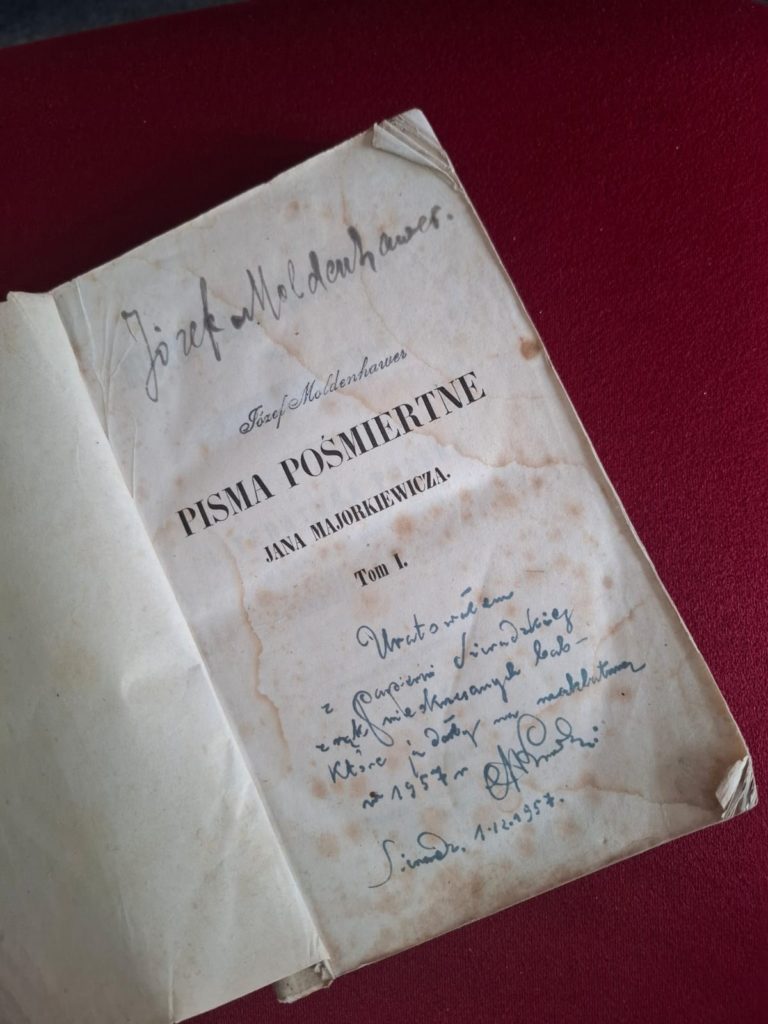 Józef Moldenhawer.
Józef Moldenhawer
PISMA POŚMIERTNE
JANA MAJORKIEWICZA.
Tom I.
Uratowałem
z papierni Sieradzkiej
z rąk nieokrzesanych bab-
które je darły na makulaturę
w 1957 r
Sieradz. 1.12.1957.